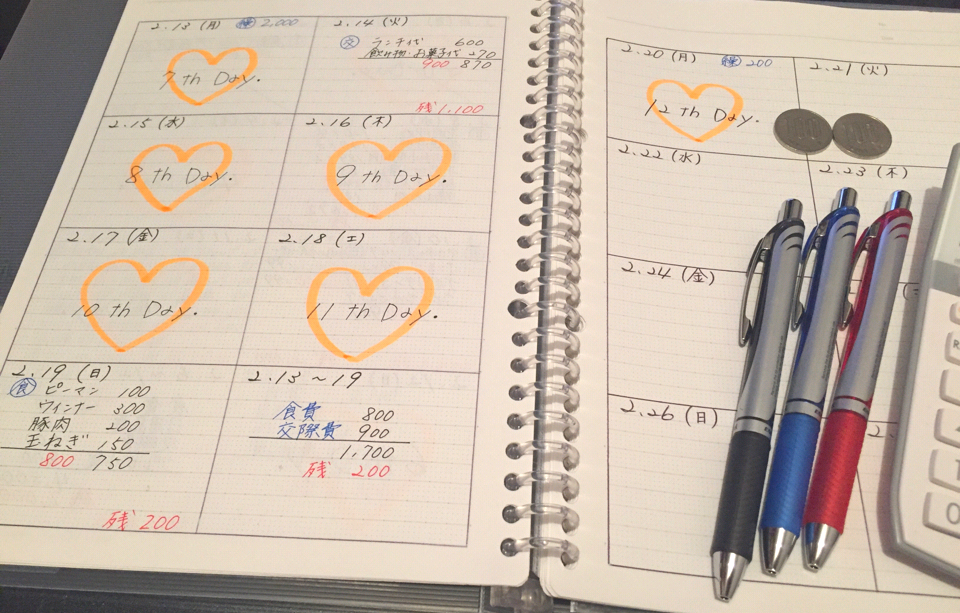 2.13 (月) 残 2,000
7 th Day.
2.14 (火)
交 ランチ代 600
飲み物・お菓子代 270
900 870
残 1,100
2.15 (水)
8 th Day.
2.16 (木)
9 th Day.
2.17 (金)
10 th Day.
2.18 (土)
11 th Day.
2.19 (日)
食 ピーマン 100
ウインナー 300
豚肉 200
玉ねぎ 150
800 750
残 200
2.13 ～ 19
食費 800
交際費 900
1,700
残 200
2.20 (月) 残 200
12 th Day.
2.21 (火)
2.22 (水)
2.23 (木)
2.24 (金)
2.26 (日)